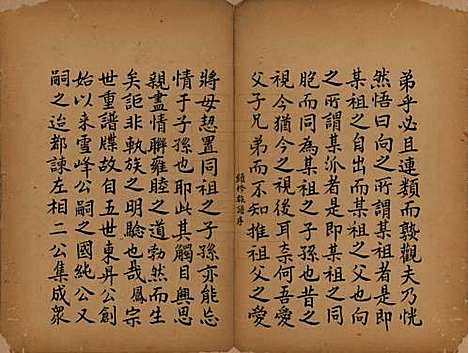 弟乎必且連類而敦觀夫乃恍
然悟曰向之所謂某祖者是即
某祖之父也向之所謂某派者是即某祖之同
胞而同為某祖之子孫也昔之
視今猶今之視後耳奈何吾愛
父子兄弟而不知推祖父之愛
續修族譜序
將毋恝置同祖之子孫亦能忘
情于子孫也即此其觸目興思
親盡情聯雍睦之道勃然而生
矣詎非軌族之明驗也哉鳳宗
世重譜牒故自五世東昇公創
始以来雪峰公嗣之國純公又
嗣之迨都諫左相二公集成衆